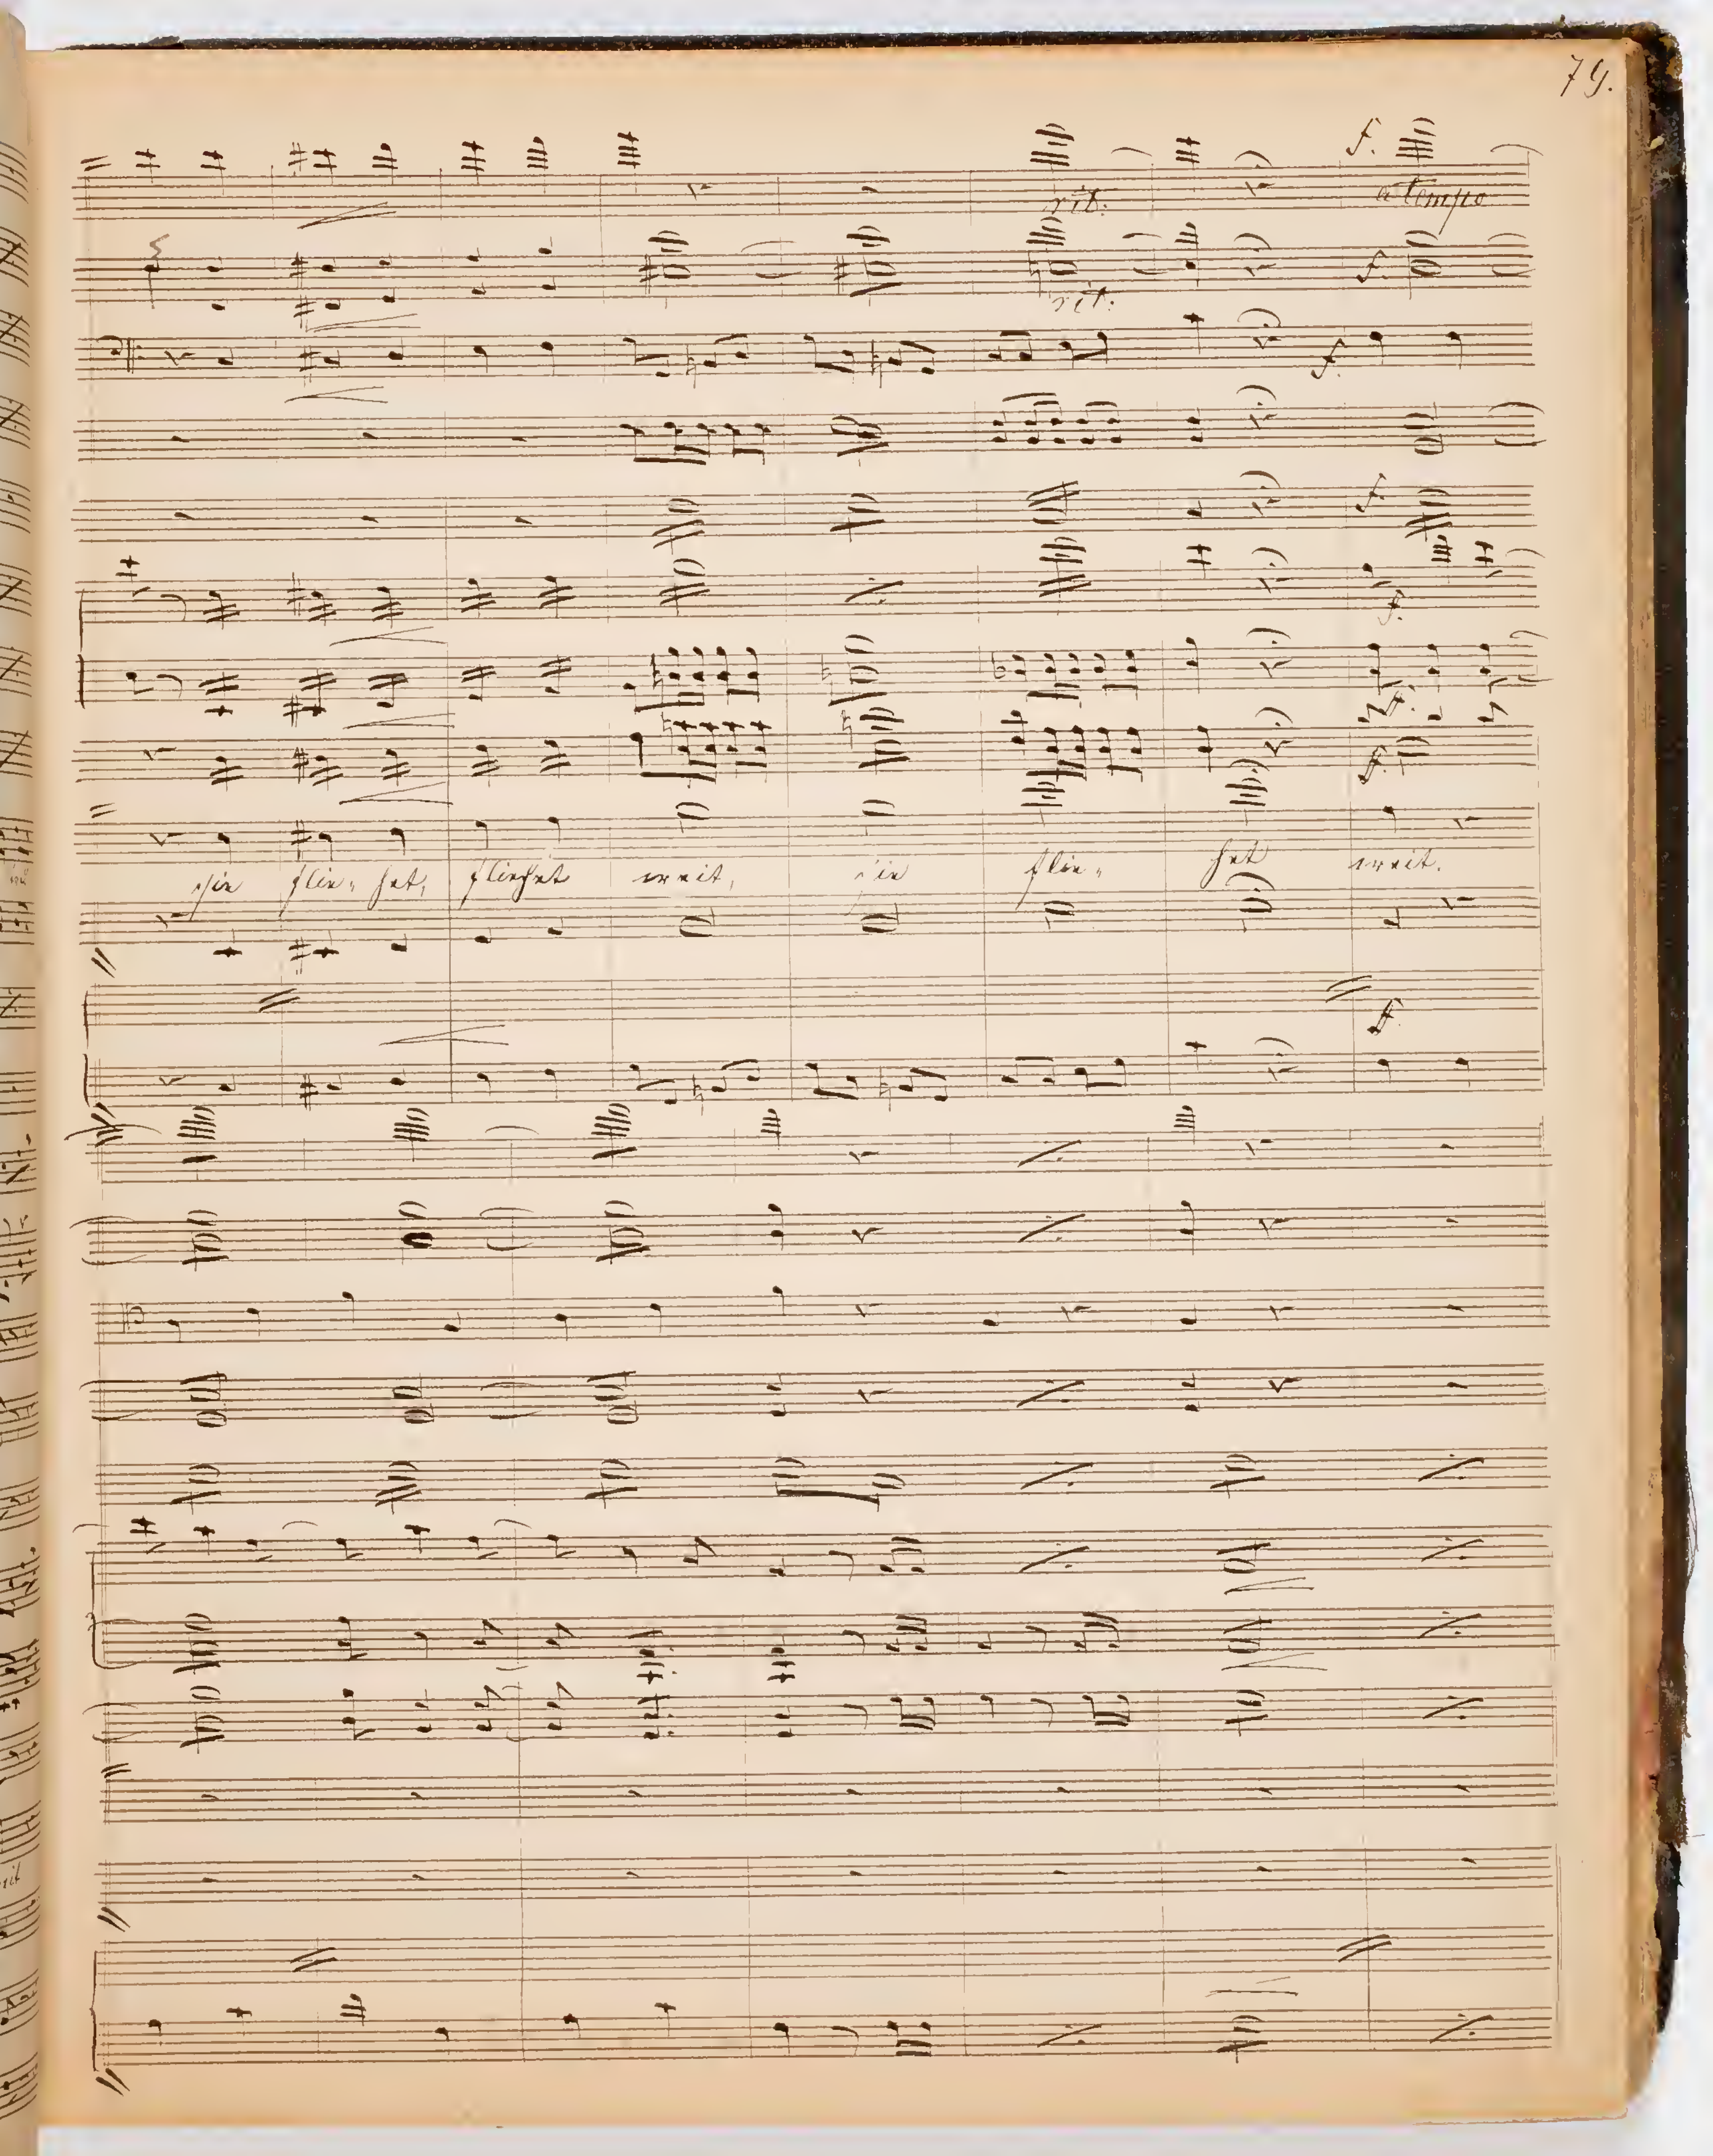 79.
f.
rit. a tempo
f.
rit.
f.
f.
f.
f.
f.
sie flie- het, fliehet weit, sie flie- het weit.
f